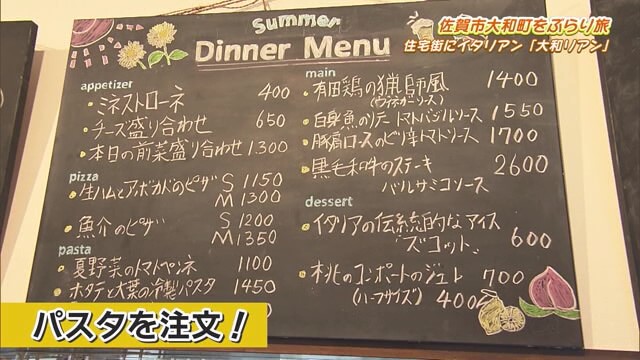 佐賀市大和町をぶらり旅
住宅街にイタリアン「大和リアン」
Summer
Dinner Menu
appetizer
・ミネストローネ 400
・チーズ盛り合わせ 650
・本日の前菜盛り合わせ 1.300
pizza
・生ハムとアボカドのピザ S 1150
M 1300
・魚介のピザ S 1200
M 1350
pasta
・夏野菜のトマトペンネ 1100
・ホタテと大葉の冷製パスタ 1450
main
・有田鶏の猟師風 1400
・白身魚のソテー トマトバジルソース 1550
・豚肩ロースのピリ辛トマトソース 1700
・黒毛和牛のステーキ 2600
バルサミコソース
dessert
・イタリアの伝統的なアイス
"ズコット" 600
・桃のコンポートのジュレ 700
(ハーフサイズ) 400
パスタを注文!